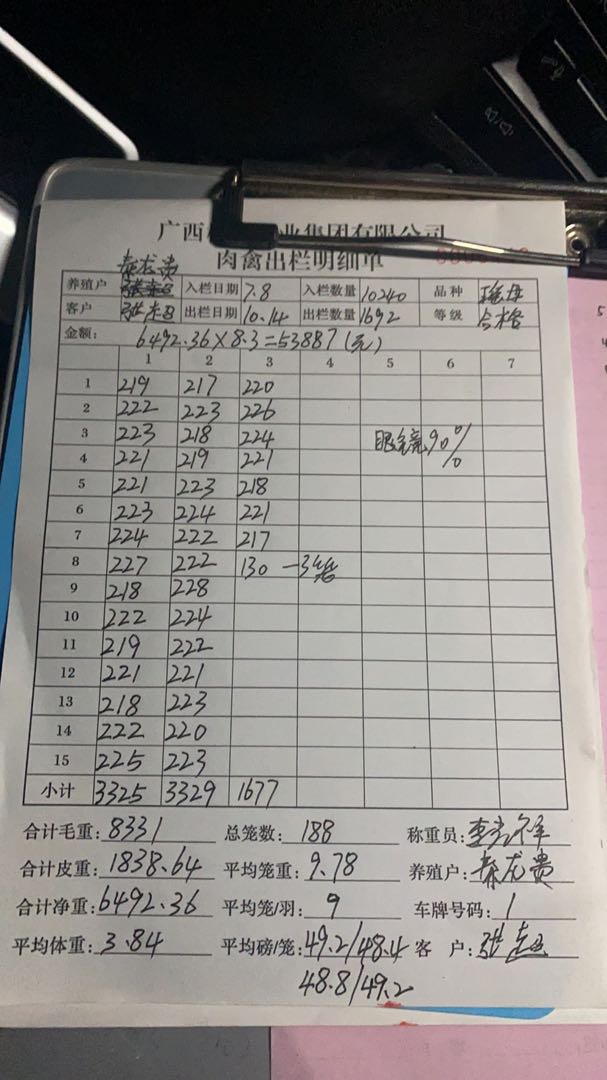 广西 业集团有限公司
肉禽出栏明细单
秦龙贵
养殖户 入栏日期 7.8 入栏数量 10240 品种
客户 出栏日期 10.14 出栏数量 1692 等级 合格
金额: 6492.36×8.3=53887(元)
1 2 3 4 5 6 7
1 219 217 220
2 222 223 226
3 223 218 224 眼亮 90%
4 221 219 221
5 221 223 218
6 223 224 221
7 224 222 217
8 227 222 130 -3笼
9 218 228
10 222 224
11 219 222
12 221 221
13 218 223
14 222 220
15 225 223
小计 3325 3329 1677
合计毛重: 8331 总笼数: 188 称重员: 李
合计皮重: 1838.64 平均笼重: 9.78 养殖户: 秦龙贵
合计净重: 6492.36 平均笼/羽: 9 车牌号码: 1
平均体重: 3.84 平均磅/笼: 49.2/48.4 客 户: 张
48.8/49.2